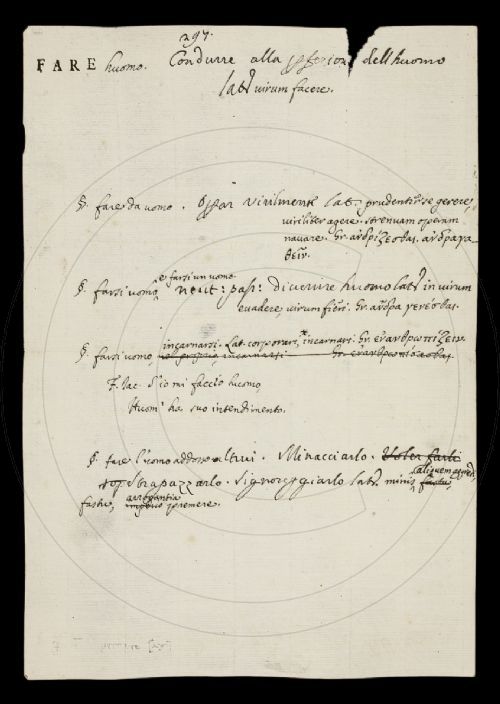 297.
FARE huomo. Condurre alla dell huomo
lat. virum facere.
§. fare da uomo. Oprar virilmente lat. prudenter se gerere
viriliter agere. strenuam operam
navare. Gr. ἀνδρίζεσθαι. ἀνδραγα-
θεῖν.
e farsi un uomo.
§. farsi uomo, neut: pass: Divenire huomo lat. in virum
evadere, virum fieri. Gr. ἄνδρα γενέσθαι.
incarnarsi. Lat. corporari, incarnari. Gr. ἐνανθρωπίζειν.
§. farsi uomo, incarnarsi Gr. ἐνανθρωπίσασθαι.
F. Iac S'io mi faccio huomo,
Huom' ha suo intendimento.
§. fare l'uomo addosso altrui. Minacciarlo. Voler farli
aliquem agere,
sop Strapazzarlo. Signoreggiarlo lat. minis
fastu, arrogantia premere.